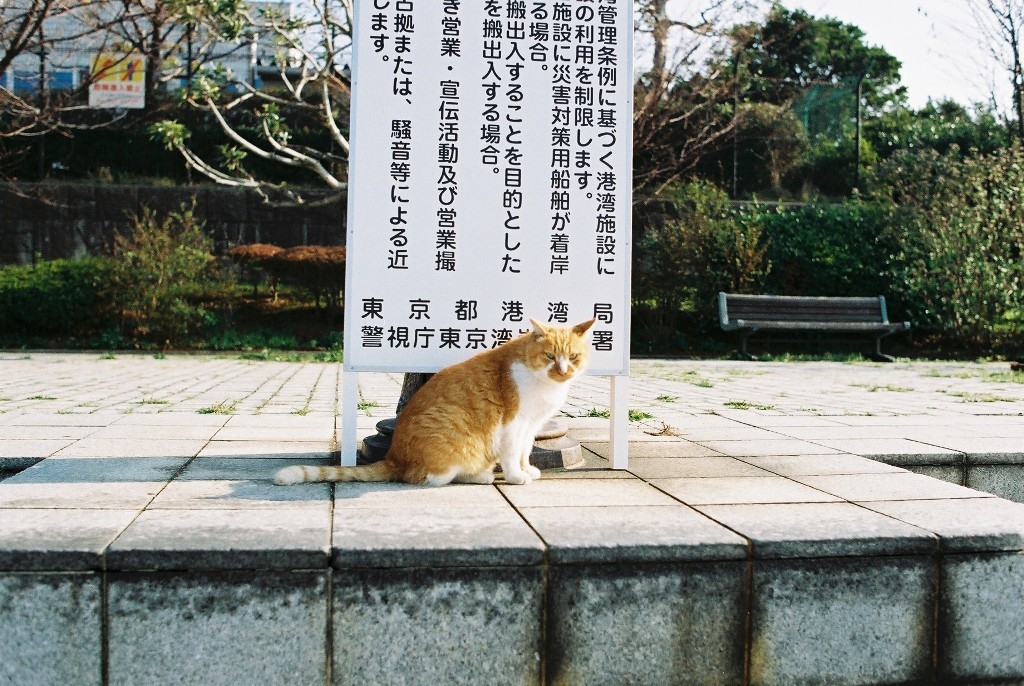 管理条例に基づく港湾施設に
の利用を制限します。
施設に災害対策用船舶が着岸
る場合。
搬出入することを目的とした
を搬出入する場合。
き営業・宣伝活動及び営業撮
占拠または、騒音等による近
します。
東京都港湾局
警視庁東京湾岸署